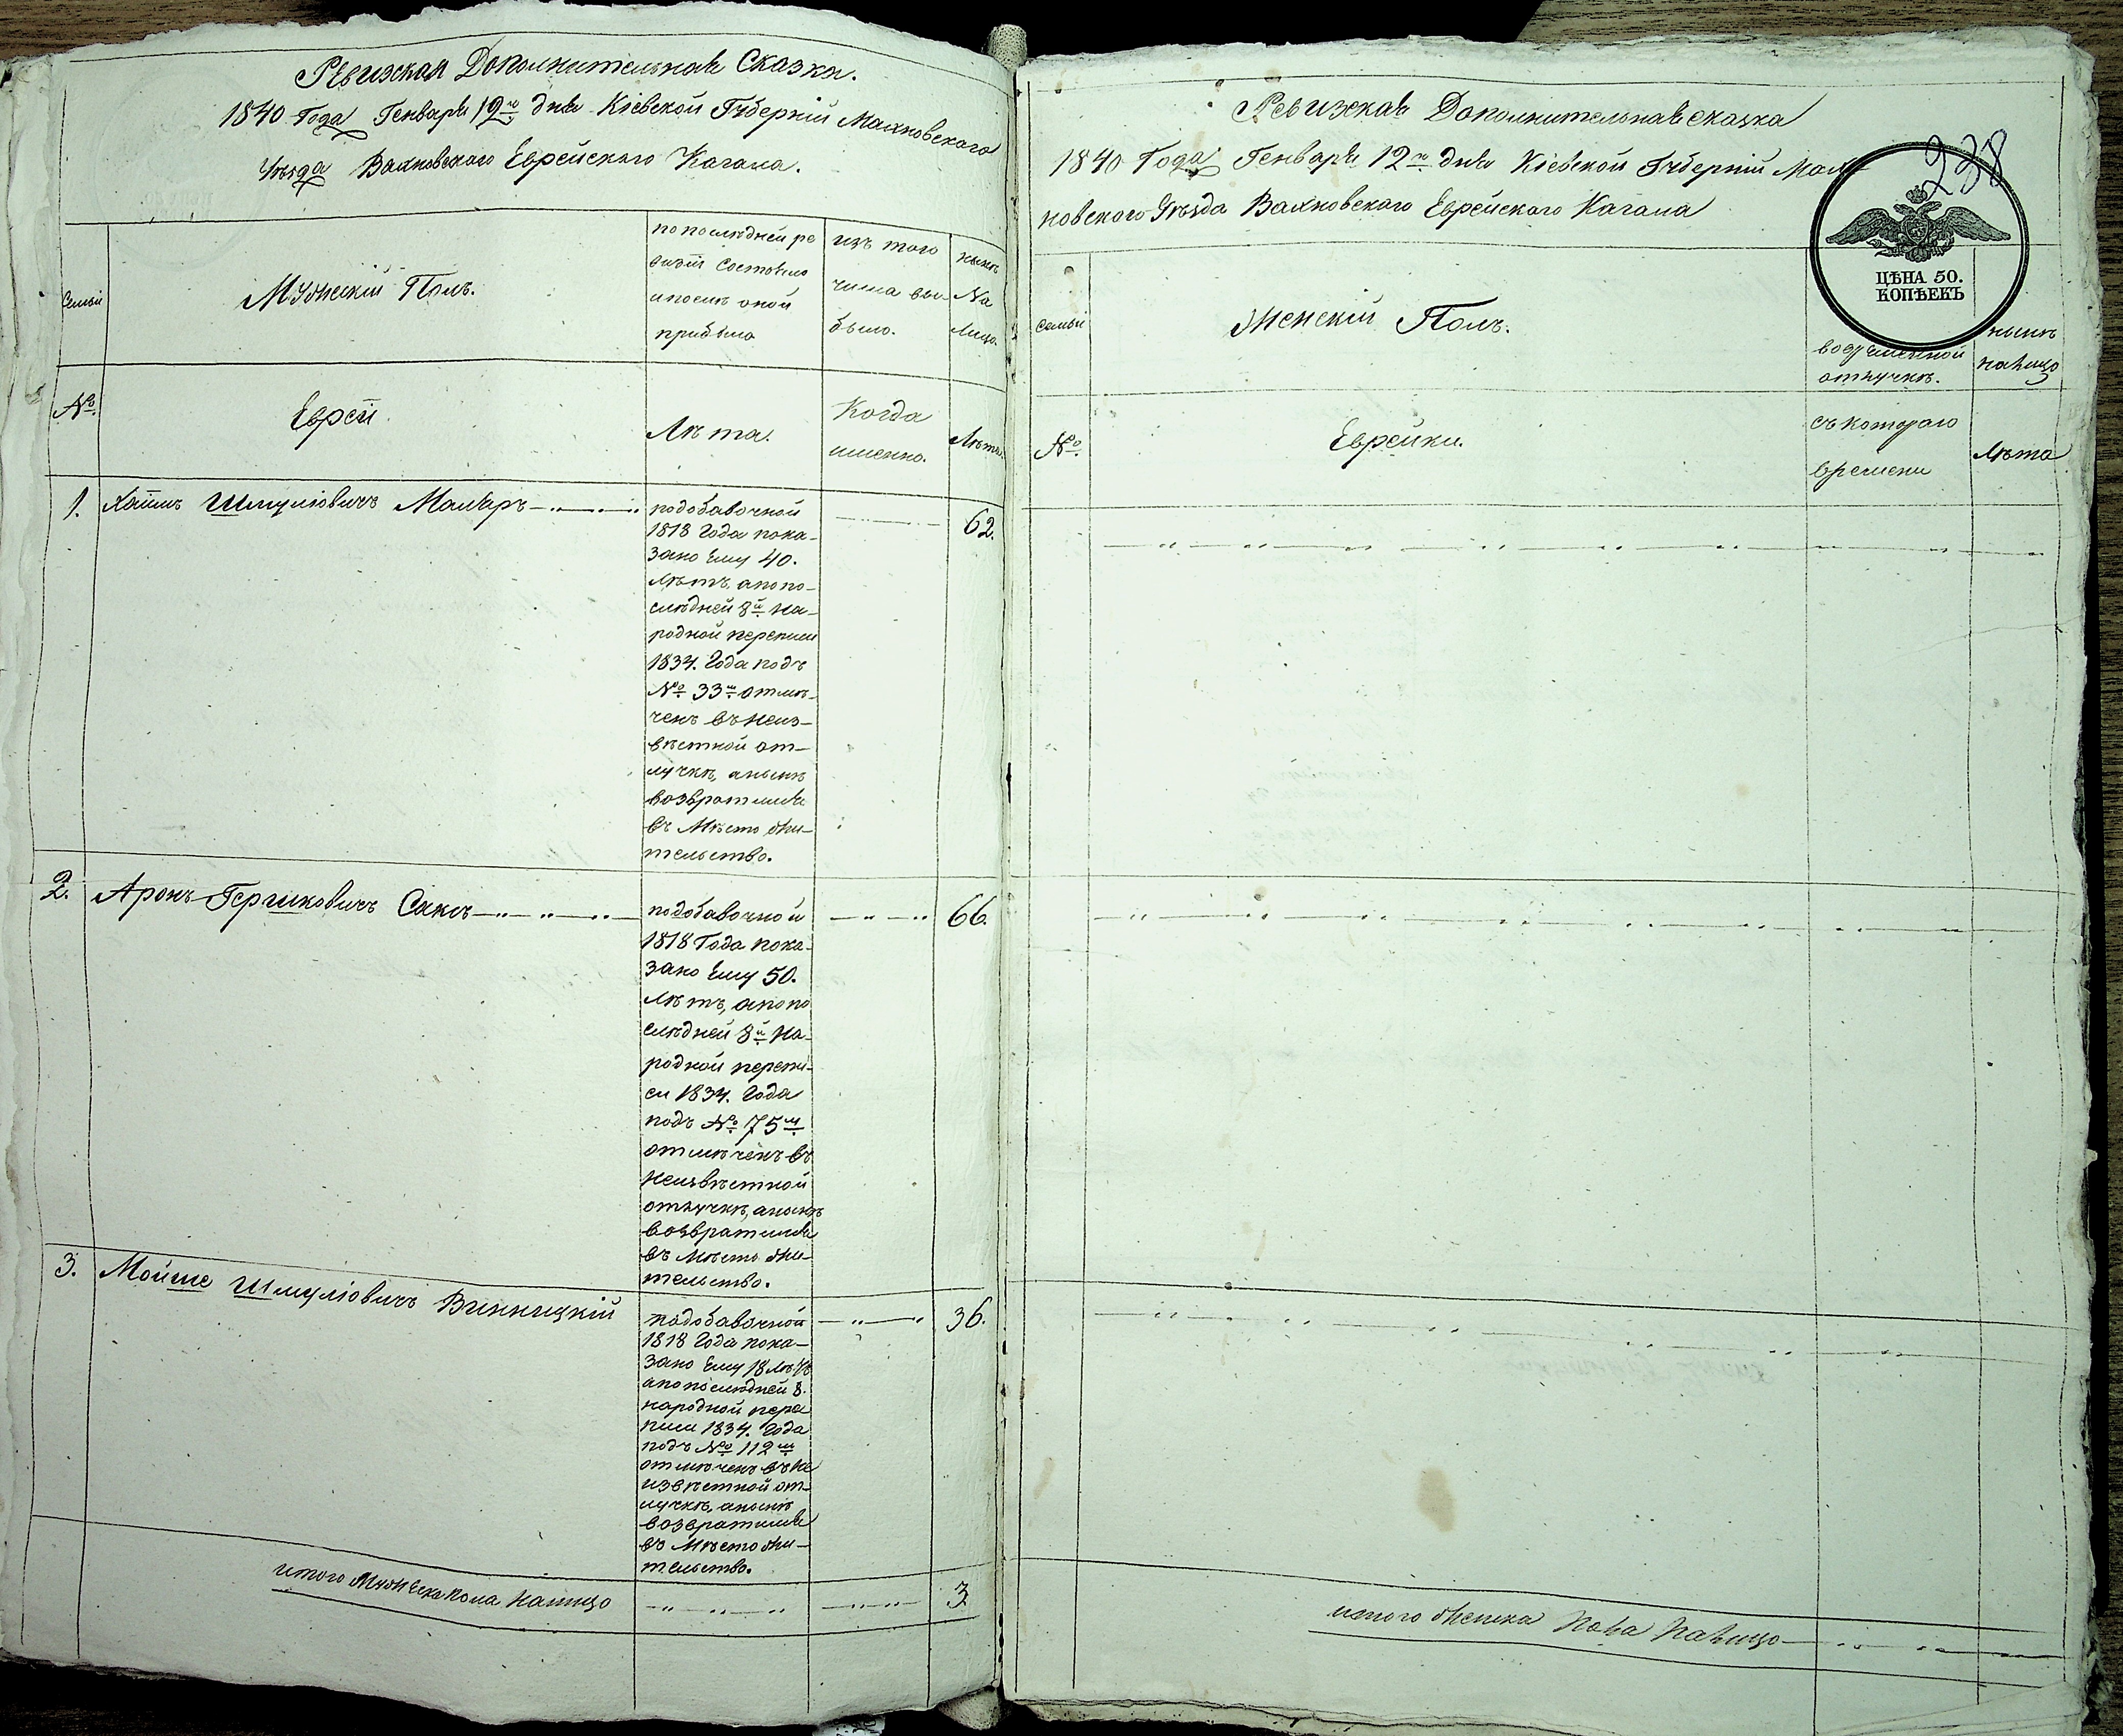 Ревизская Дополнительная Сказка.
1840 Года Генваря 12го дня Кіевской Губерніи Махновскаго
Уезда Вахновскаго Еврейскаго Кагала.
Семьи
Мужескій Полъ.
по последней ре
визіи состояло
и после оной
прибыло
изъ того
числа вы-
было.
ныне
На
Лицо.
№
Евреи
Лѣта.
Когда
именно.
Лѣта.
1. Хаимъ Шмуліовичъ Маляръ
подобавочной
1818 года пока-
зано Ему 40.
лѣтъ, а по по-
слѣдней 8й на-
родной переписи
1834. Года подъ
№ 33м отмѣ-
ченъ въ неиз-
вѣстной от-
лучкѣ, а нынѣ
возвратился
въ Мѣсто жи-
тельство.
62.
2. Аронъ Гершковичъ Сакъ
подобавочной
1818 Года пока-
зано Ему 50.
Лѣтъ, а по по
слѣдней 8й На-
родной перепи-
си 1834. Года
подъ № 75м
отмѣченъ въ
неизвѣстной
отлучкѣ, а нынѣ
возвратился
въ Мѣсто жи-
тельство.
66.
3. Мойше Шмуліовичъ Винницкій
подобавочной
1818 Года пока-
зано Ему 18 лѣтъ
а по последней 8.
народной пере
писи 1834. Года
подъ № 112м
отмѣченъ въ не
извѣстной от-
лучкѣ, а нынѣ
возвратился
въ Мѣсто жи-
тельство.
36.
итого Мужеска пола налицо
3
Ревизская Дополнительная сказка
1840 Года Генваря 12го дня Кіевской Губерніи Мах
новского Уѣзда Вахновскаго Еврейского Кагала
238
ЦѢНА 50.
КОПѢЕКЪ
семьи
Женскій Полъ.
во временной
отлучкѣ.
нынѣ
налицо
№
Еврейки.
съ котораго
времени
Лѣта
итого женска пола налицо